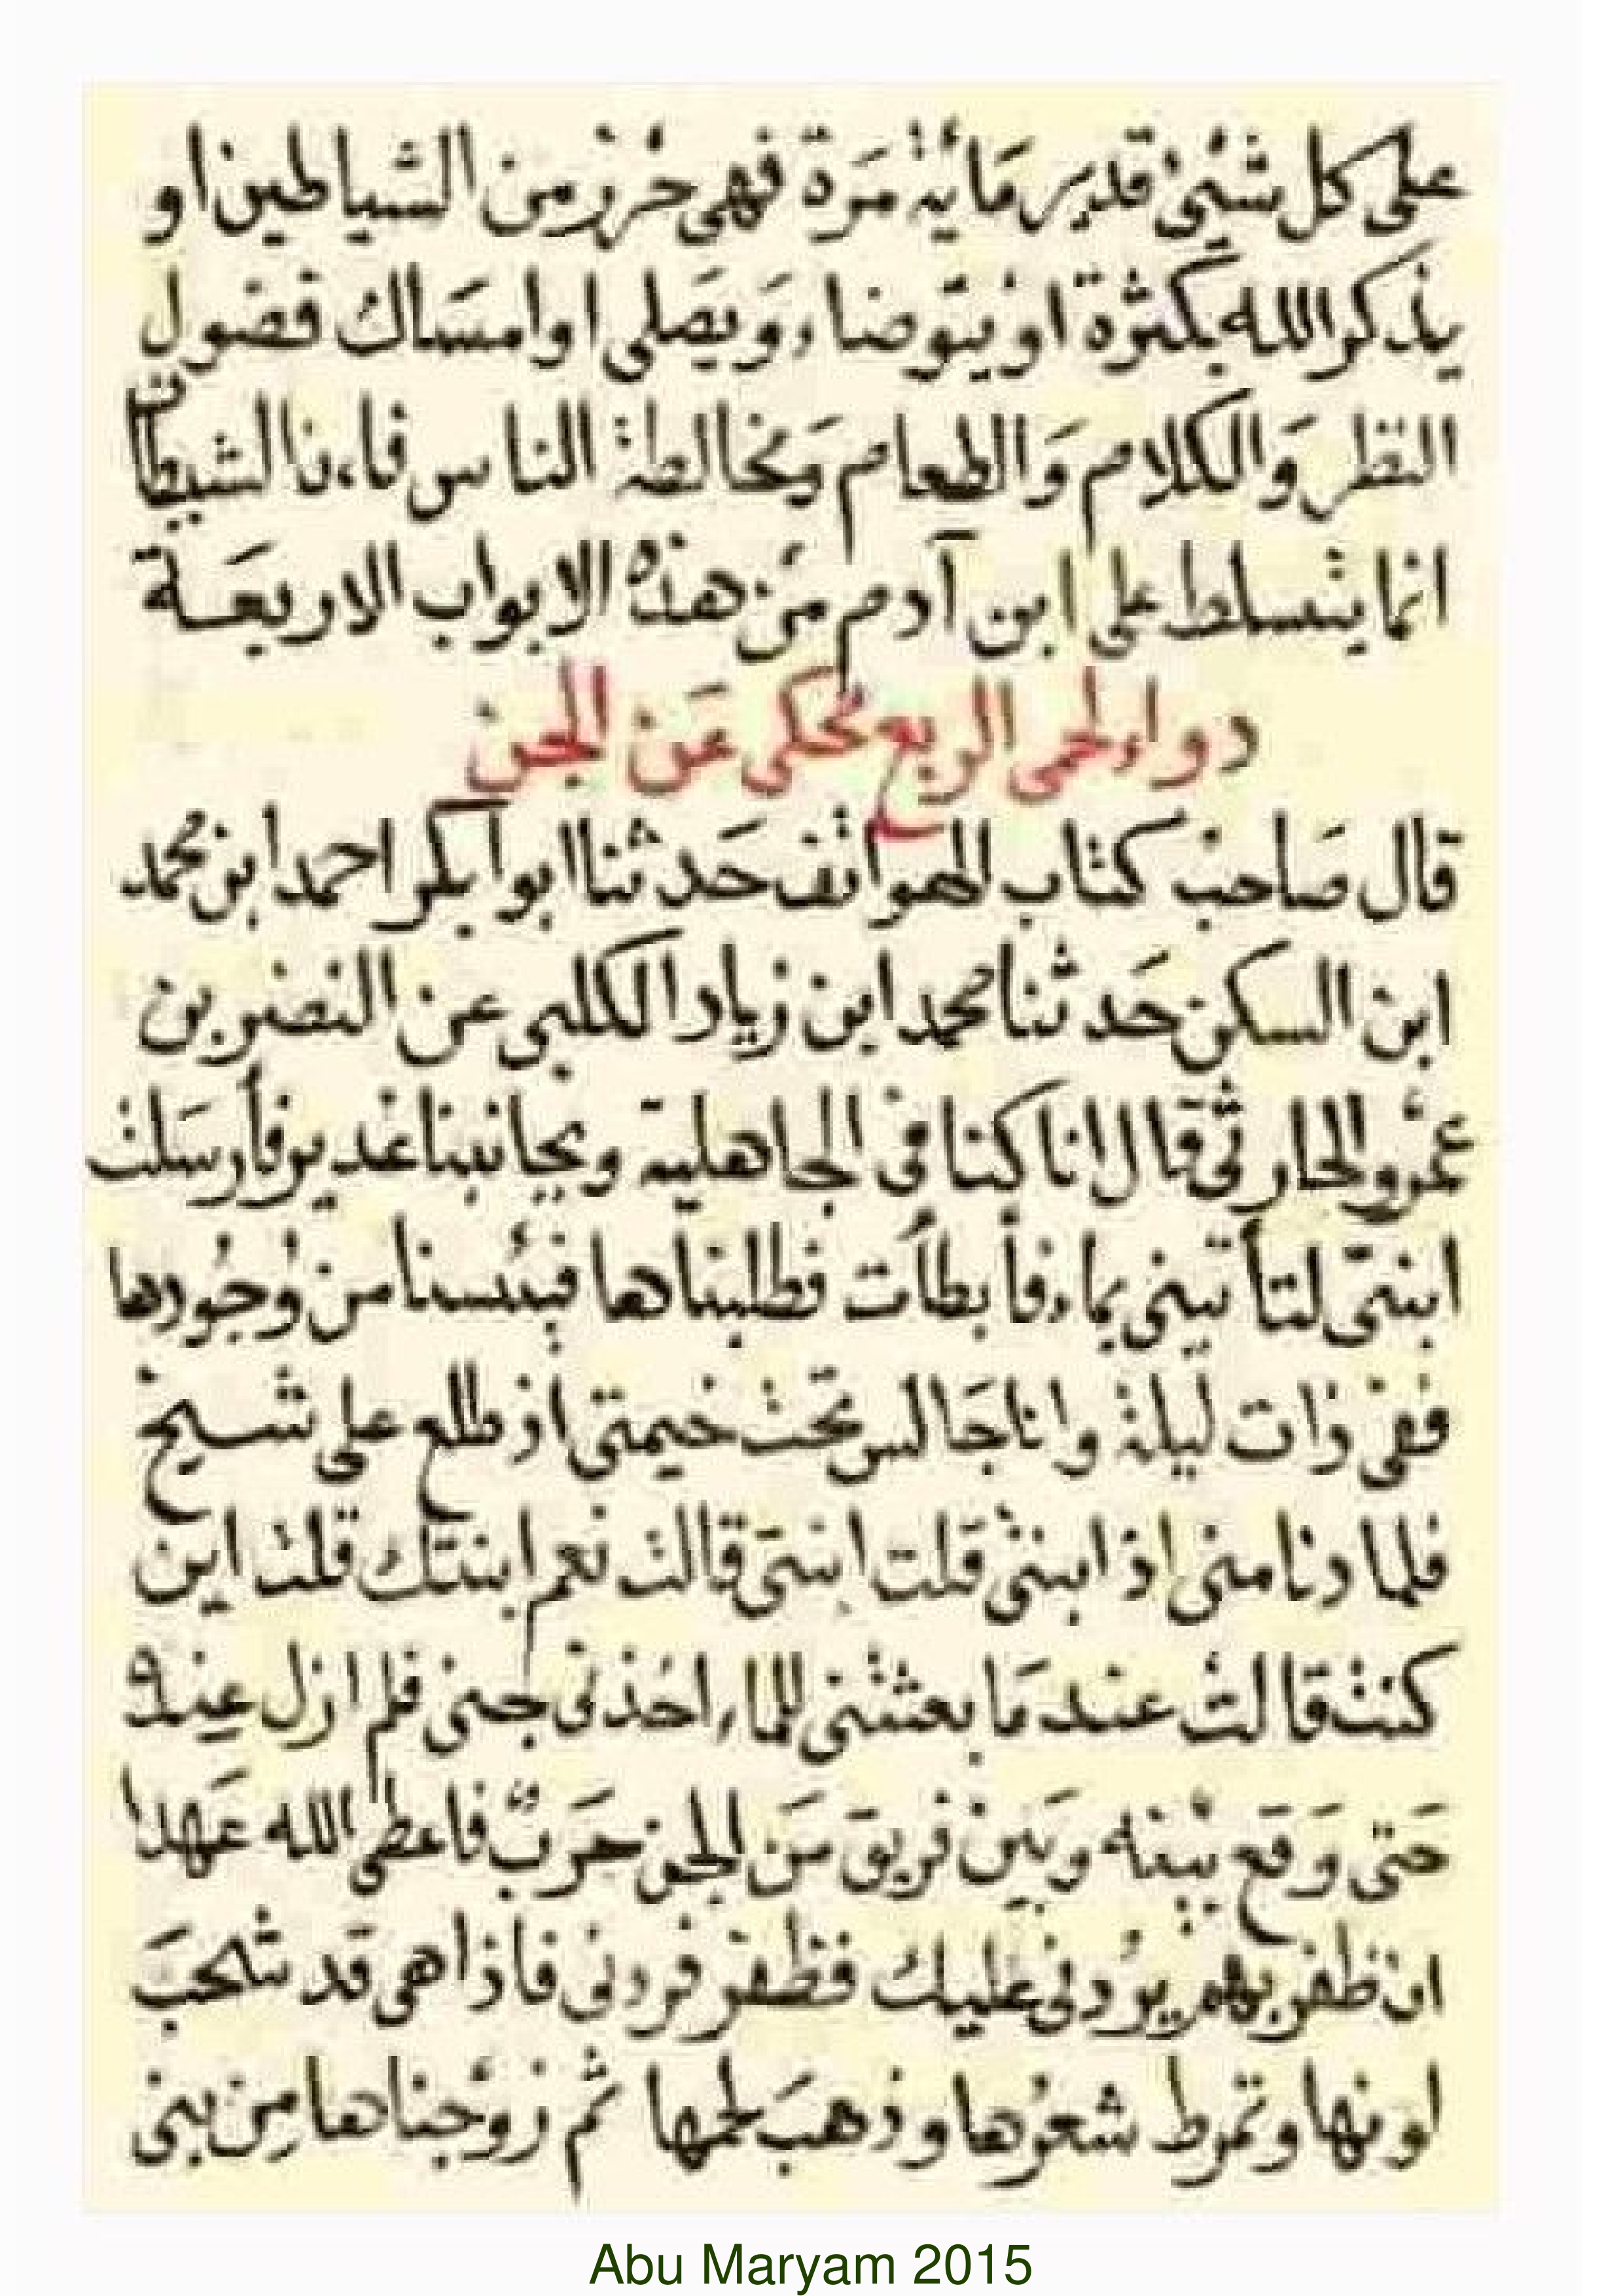 على كل شيئ قدير مائة مرة فهي حرز من الشياطين او
يذكر الله بكثرة او يتوضا ء ويصلى او امساك فضول
النظر والكلام والطعام ومخالطة الناس فاءن الشيطان
انما يتسلط على ابن آدم من هذه الابواب الاربعة
دواء لحمى الربع يحكى عن الجن
قال صاحب كتاب الهواتف حدثنا ابوا بكر احمد ابن محمد
ابن السكن حدثنا محمد ابن زياد الكلبى عن النضر بن
عمرو الحارثى قال انا كنا فى الجاهلية وبجانبنا غدير فأرسلت
ابنتى لتأتينى بماء فأبطأت فطلبناها فيئسنا من وجودها
ففى ذات ليلة وانا جالس تحت خيمتى اذ طلع على شيخ
فلما دنا منى اذا ابنتى قلت ابنتى قالت نعم ابنتك قلت اين
كنت قالت عند ما بعثتنى للماء اخذنى جنى فلم ازل عنده
حتى وقع بينه وبين فريق من الجن حرب فاعطى الله عهدا
ان ظفر بهم يردنى عليك فظفر فردنى فاذا هى قد شحب
لونها وتمرط شعرها وذهب لحمها ثم زوجناها من بنى
Abu Maryam 2015